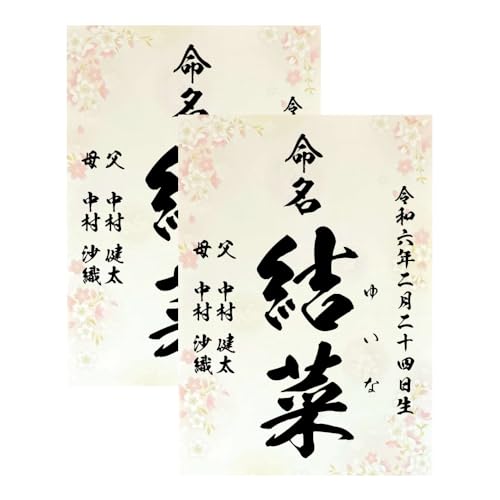 令和六年二月二十四日生
命名
結菜
ゆいな
父 中村 健太
母 中村 沙織
令
命名
結菜
父 中村 健太
母 中村 沙織